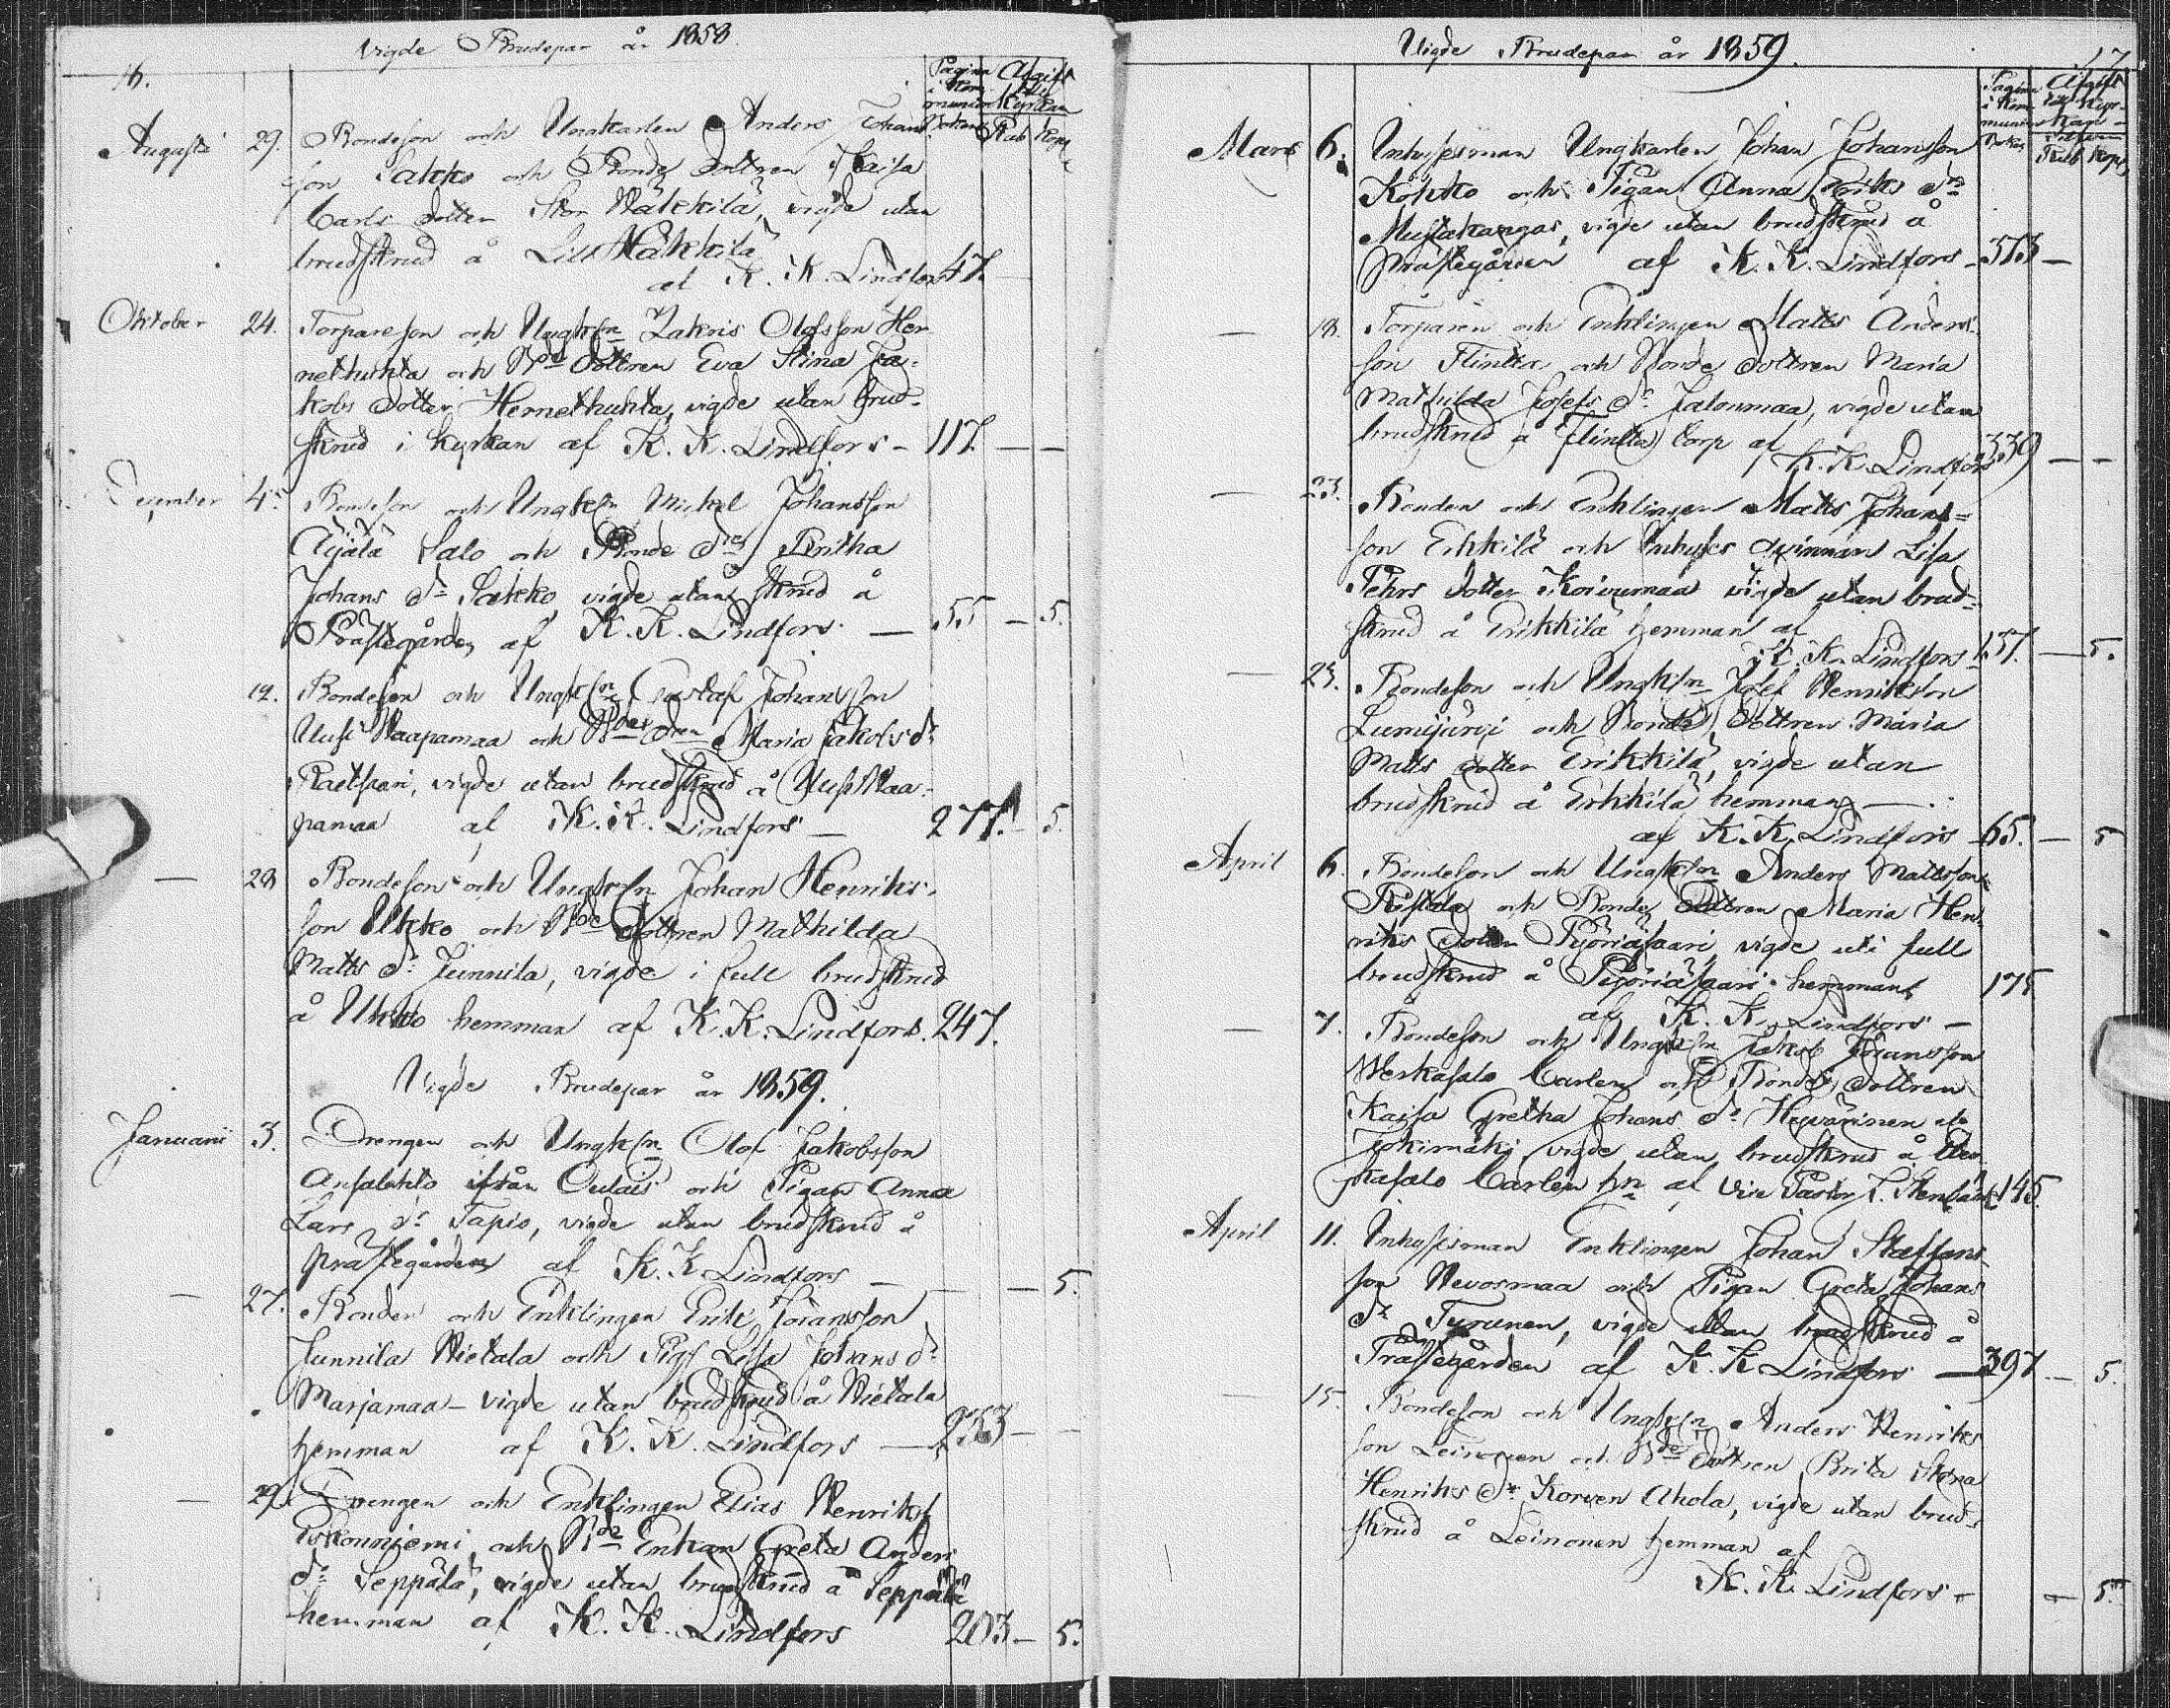 Vigde Brudepar år 1858.
16.
Pagina i Kommunion Boken
Afgift till Kyrkan
Rub Kop
Augusti 29. Bondeson och Ungkarlen Anders Johans
son Sakko och Bonde dottren Kaisa
Carls dotter Stor Näkkilä, vigde utan
brudskrud å Lill Näkkilä
af K. K. Lindfors 47. —
Oktober 24. Torpareson och Ungkln Zakris Olofsson Her
nethuhta och Bde dottren Eva Stina Ja=
kobs dotter Hernethuhta, vigde utan brud-
skrud i kyrkan af K. K. Lindfors - 117. — —
December 4. Bondeson och Ungkln Mickel Johansson
Äijälä Salo och Bonde drn Britha
Johans dr Sakko, vigde utan skrud å
Prästegården af K. K. Lindfors — 55 — 5.
12. Bondeson och Ungkln Gustaf Johansson
Uusi Haapamaa och Bde dren Maria Jakobs dr
Raetsaari, vigde utan brudskrud å Uusi Haa=
pamaa af K. K. Lindfors — 277. — 5.
— 28 Bondeson och Ungkln Johan Henriks-
son Ukko och Bde dottren Mathilda
Matts dr Junnila, vigde i full brudskrud
å Ukko hemman af K. K. Lindfors. 247.
Vigde Brudepar år 1859.
Januarii 3. Drengen och Ungkln Olof Jakobsson
Ansalehto ifrån Oulais och Pigan Anna
Lars dr Tapio, vigde utan brudskrud å
prästegården af K. K. Lindfors — — 5.
— 27. Bonden och Enklingen Erik Johansson
Junnila Hietala och Pig. Lisa Johans dr
Marjamaa - vigde utan brudskrud å Hietala
hemman af K. K. Lindfors — 253 — —
— 29. Drengen och Enklingen Elias Henriks
Iskonniemi och Bde Enkan Greta Anders
dr Seppälä, vigde utan brudskrud å Seppälä
hemman af K. K. Lindfors 203 — 5.
Vigde Brudepar år 1859.
17
Pagina i Kommunion Boken
Afgift till Kyrkan
Silfver
Rub Kop
Mars 6. Inhysesman Ungkarlen Johan Johansson
Kohko och Pigan Anna Eriks dr
Mustakangas, vigde utan brudskrud å
prästegården af K. K. Lindfors - 373 —
— 18. Torparen och Enklingen Matts Anders-
son Flinta och Bonde dottren Maria
Mathilda Josefs dr Jaloumaa, vigde utan
brudskrud å Flinta torp af
K. K. Lindfors 339 — —
— 23. Bonden och Enklingen Matts Johans=
son Erkkilä och Inhyses qvinnan Lisa
Pehrs dotter Koivumaa vigde utan brud=
skrud å Erikkilä hemman af
K. K. Lindfors - 137. — 5.
— 25. Bondeson och Ungkln Josef Henriksson
Lumijärvi och Bonde dottren Maria
Matts dotter Erikkilä, vigde utan
brudskrud å Erkkilä hemman —
af K. K. Lindfors - 65. — 5
April 6. Bondeson och Ungkln Anders Mattsson
Ristola och Bonde dottren Maria Hen
riks dotter Pyöriäsaari vigde uti full
brudskrud å Pyöriäsaari hemman 175
af K. K. Lindfors —
— 7. Bondeson och Ungkln Jakob Johansson
Weskasalo Carlen och Bonde dottren
Kaisa Gretha Johans dr Hyvärinen
Jokimäki vigde utan brudskrud å Wes
kasalo Carlen hn af Vice Pastor 145.
April 11. Inhysesman Enklingen Johan Staffans
son Nevosmaa och Pigan Greta Johans
dr Tyrunen, vigde utan brudskrud å
Prästegården af K. K. Lindfors — 397 — 5.
— 15. Bondeson och Ungkln Anders Henriks
son Leinonen och Bde dottren Brita Stina
Henriks dr Korven Ahola, vigde utan brud=
skrud å Leinonen hemman af
K. K. Lindfors — — 5.